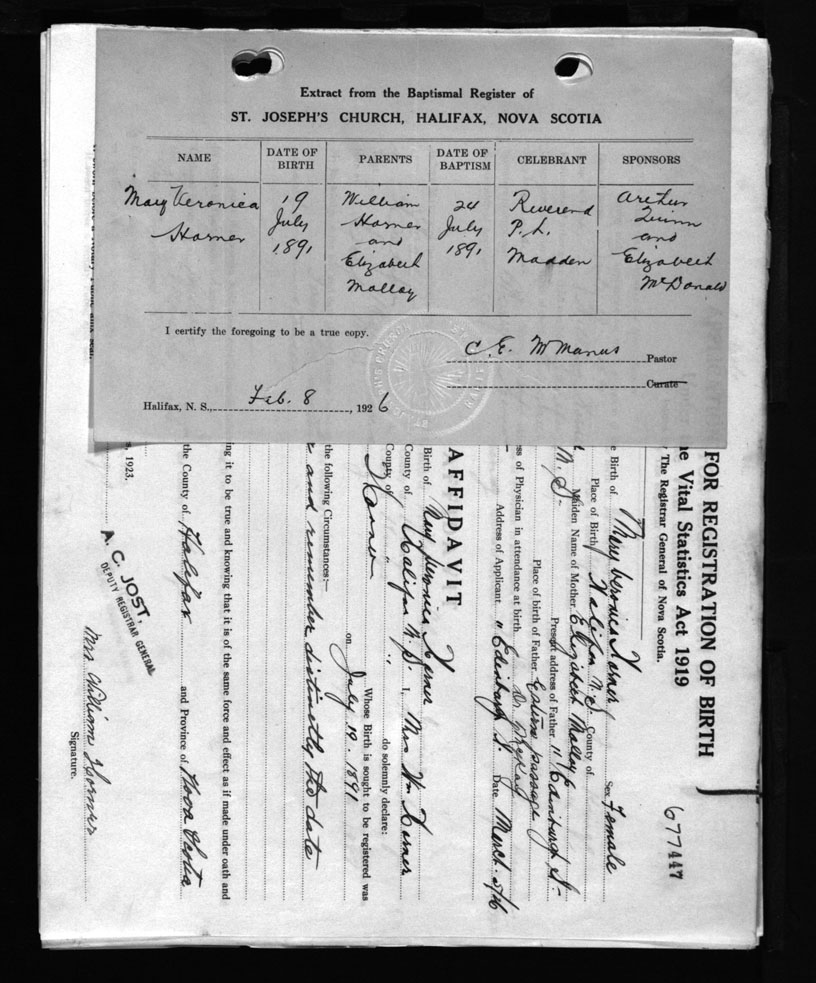 Extract from the Baptismal Register of
ST. JOSEPH'S CHURCH, HALIFAX, NOVA SCOTIA
NAME DATE OF BIRTH PARENTS DATE OF BAPTISM CELEBRANT SPONSORS
Mary Veronica 19 William 24 Reverend Arthur
Horner July Horner July P. L. Quinn
1891 and 1891 Madden and
Elizabeth Elizabeth
Malloy McDonald
I certify the foregoing to be a true copy.
C. E. McManus Pastor
Curate
Halifax, N. S., Feb. 8, 1926
FOR REGISTRATION OF BIRTH
e Vital Statistics Act 1919
The Registrar General of Nova Scotia.
677447
e Birth of Mary Veronica Horner Sex Female
Place of Birth Halifax N.S. County of
Maiden Name of Mother Elizabeth Malloy
N. S. Present address of Father 11 Edinburgh St.
Place of birth of Father Eastern passage
ss of Physician in attendance at birth. Dr.
Address of Applicant 11 Edinburgh St. Date March
AFFIDAVIT
Birth of Mary Veronica Horner
County of Halifax N.S. I, Mrs Wm Horner
County of " " do solemnly declare:
Horner Whose Birth is sought to be registered was
on July 19. 1891
the following Circumstances:—
and remember distinctly the date
ng it to be true and knowing that it is of the same force and effect as if made under oath and
the County of Halifax and Province of Nova Scotia
A. C. JOST,
DEPUTY REGISTRAR GENERAL
1923.
Mrs William Horner
Signature.